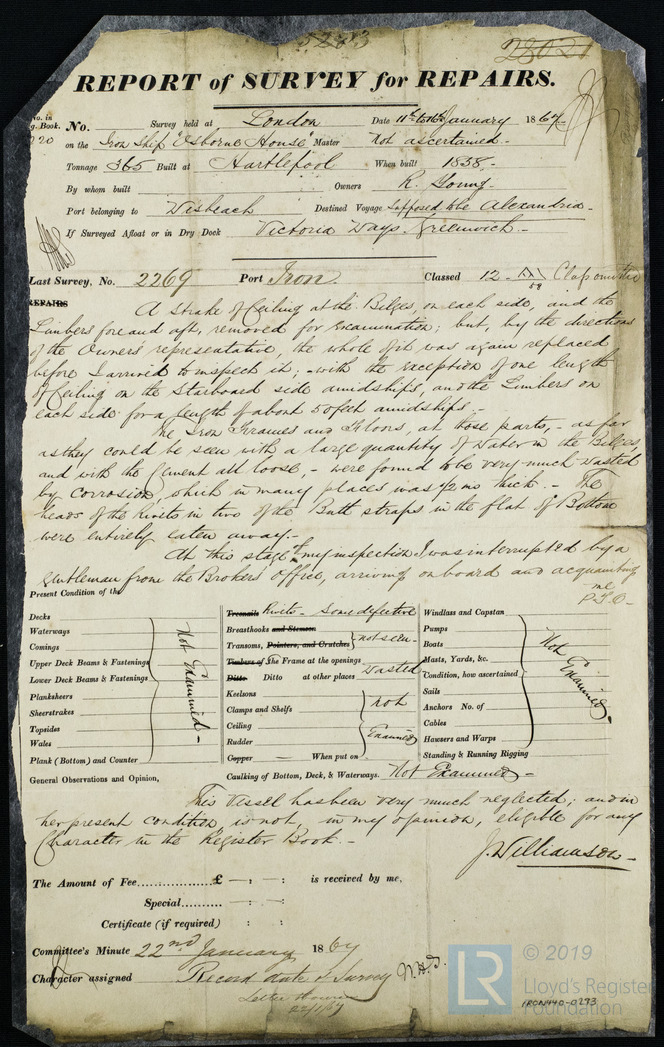 5283
REPORT of SURVEY for REPAIRS.
No. in
g. Book.
220
No. Survey held at London Date 11th to 16th January 1867
on the Iron Ship "Osborne House" Master Not ascertained.
Tonnage 365 Built at Hartlepool When built 1858.
By whom built Owners R. Young.
Port belonging to Wisbeach Destined Voyage Supposed to be Alexandria.
If Surveyed Afloat or in Dry Dock Victoria Ways, Greenwich.
Last Survey, No. 2269 Port Iron. Classed 12 58
REPAIRS
A Strake of Ceiling at the Bilges, on each side, and the
Limbers fore and aft, removed for examination; but, by the directions
of the Owners representative, the whole of it was again replaced
before I arrived to inspect it; - with the exception of one length
of Ceiling on the Starboard side amidships, and the Limbers on
each side for a length of about 50 feet amidships. -
The Iron Frames and Floors, at those parts, - as far
as they could be seen with a large quantity of water in the Bilges,
and with the Cement all loose, - were found to be very much wasted
by Corrosion, which in many places was 1/2 ins thick. - The
heads of the rivets in two of the Butt straps in the flat of Bottom
were entirely eaten away. -
At this stage of my inspection I was interrupted by a
gentleman from the Brokers Office, arriving on board and acquainting
me
P.T.O.
Present Condition of the
Decks
Waterways
Comings
Upper Deck Beams & Fastenings
Lower Deck Beams & Fastenings
Planksheers
Sheerstrakes
Topsides
Wales
Plank (Bottom) and Counter
Not Examined -
Treenails Rivets - Some defective
Breasthooks and Stemson
Transoms, Pointers, and Crutches
not seen -
Timbers of the Frame at the openings
Ditto Ditto at other places
Wasted
Keelsons
Clamps and Shelfs
Ceiling
Rudder
not Examined
Copper — When put on
Caulking of Bottom, Deck, & Waterways. Not Examined -
Windlass and Capstan
Pumps
Boats
Masts, Yards, &c.
Condition, how ascertained
Sails
Anchors No. of
Cables
Hawsers and Warps
Standing & Running Rigging
Not Examined -
General Observations and Opinion,
This Vessel has been very much neglected; and in
her present condition is not, in my opinion, eligible for any
Character in the Register Book. -
J. Williamson
The Amount of Fee............£ — : — : is received by me,
Special.......... : :
Certificate (if required) : :
Committee's Minute 22nd January 1867
Character assigned Record date of Survey
22/1/67
LR
© 2019
Lloyd's Register
Foundation
IRON440-0293